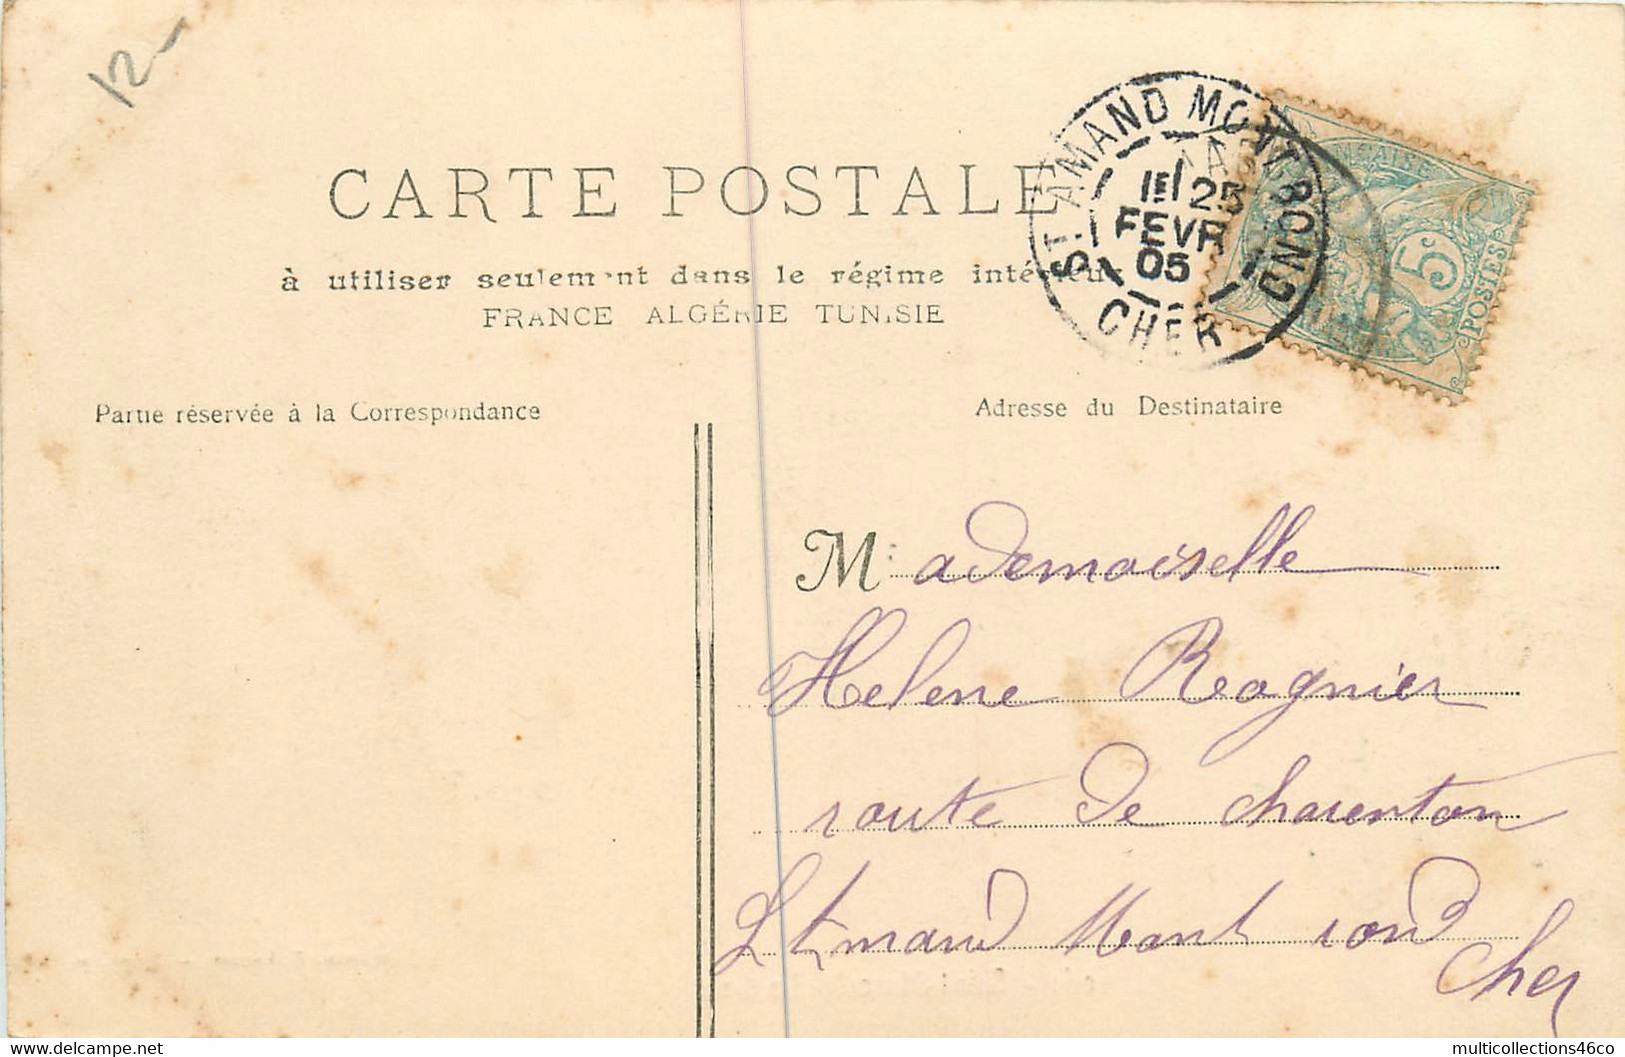 12-
CARTE POSTALE
à utiliser seulement dans le régime intérieur
FRANCE ALGÉRIE TUNISIE
ST AMAND MONTROND
1E 25
FEVR
05
CHER
5c
POSTES
Partie réservée à la Correspondance
Adresse du Destinataire
Mademoiselle
Helene Reagnier
route de charenton
St Amand Mont rond
Cher
Delcampe.net
multicollections46co